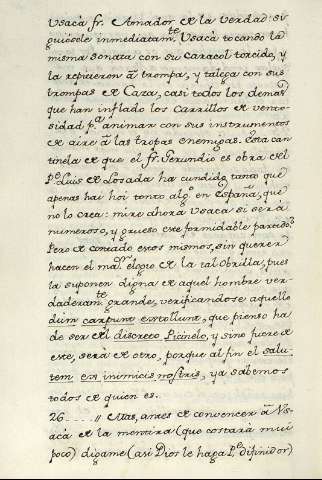 Usacà fr. Amador de la Verdad: si
guiósele inmediatam.te Usacà tocando la
misma sonata con su caracol torcido, y
la repitieron à trompa, y talega con sus
trompas de Caza, casi todos los demas
que han inflado los Carrillos de vento
sidad p.a animar con sus instrumentos
de aire à las tropas enemigas. Esta can
tinela de que el fr. Gerundio es obra del
P.e Luis de Losada ha cundido tanto que
apenas hai hoi tonto alg.o en España, que
no lo crea: mire ahora Usaca si será
numeroso, y grueso ese formidable partido?
Pero de contado estos mismos, sin querer
hacen el ma.or elogio de la tal Obrilla, pues
la suponen digna de aquel hombre ver
daderam.te grande, verificandose aquello
dùm carpunt extollunt, que pienso ha
de ser del discreto Picinelo, y sino fuere de
este, será de otro, porque al fin el salu
tem ex inimicis nostris, ya sabemos
todos de quien es.
26 .... // Mas, antes de convencer à Us
acà de la mentira (que costará mui
poco) digame (asi Dios le haga P.e Difinidor)